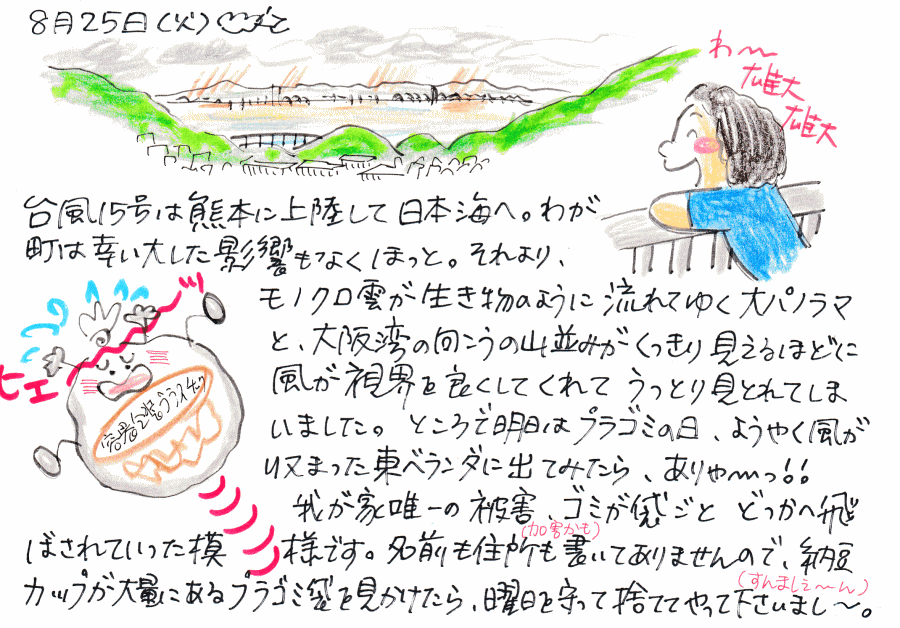 8月25日(火)
わ〜
雄大
雄大
台風15号は熊本に上陸して日本海へ。わが
町は幸い大した影響もなくほっと。それより、
モノクロ雲が生き物のように流れてゆく大パノラマ
と、大阪湾の向こうの山並みがくっきり見えるほどに
風が視界を良くしてくれてうっとり見とれてしま
いました。ところで明日はプラゴミの日、ようやく風が
収まった東ベランダに出てみたら、ありゃ〜っ!!
ヒエーッ
我が家唯一の被害、ゴミが袋ごとどっかへ飛
(加害かも)
ばされていった模様です。名前も住所も書いてありませんので、納豆
(すんましぇ〜ん)
カップが大量にあるプラゴミ袋を見かけたら、曜日を守って捨ててやって下さいまし〜。